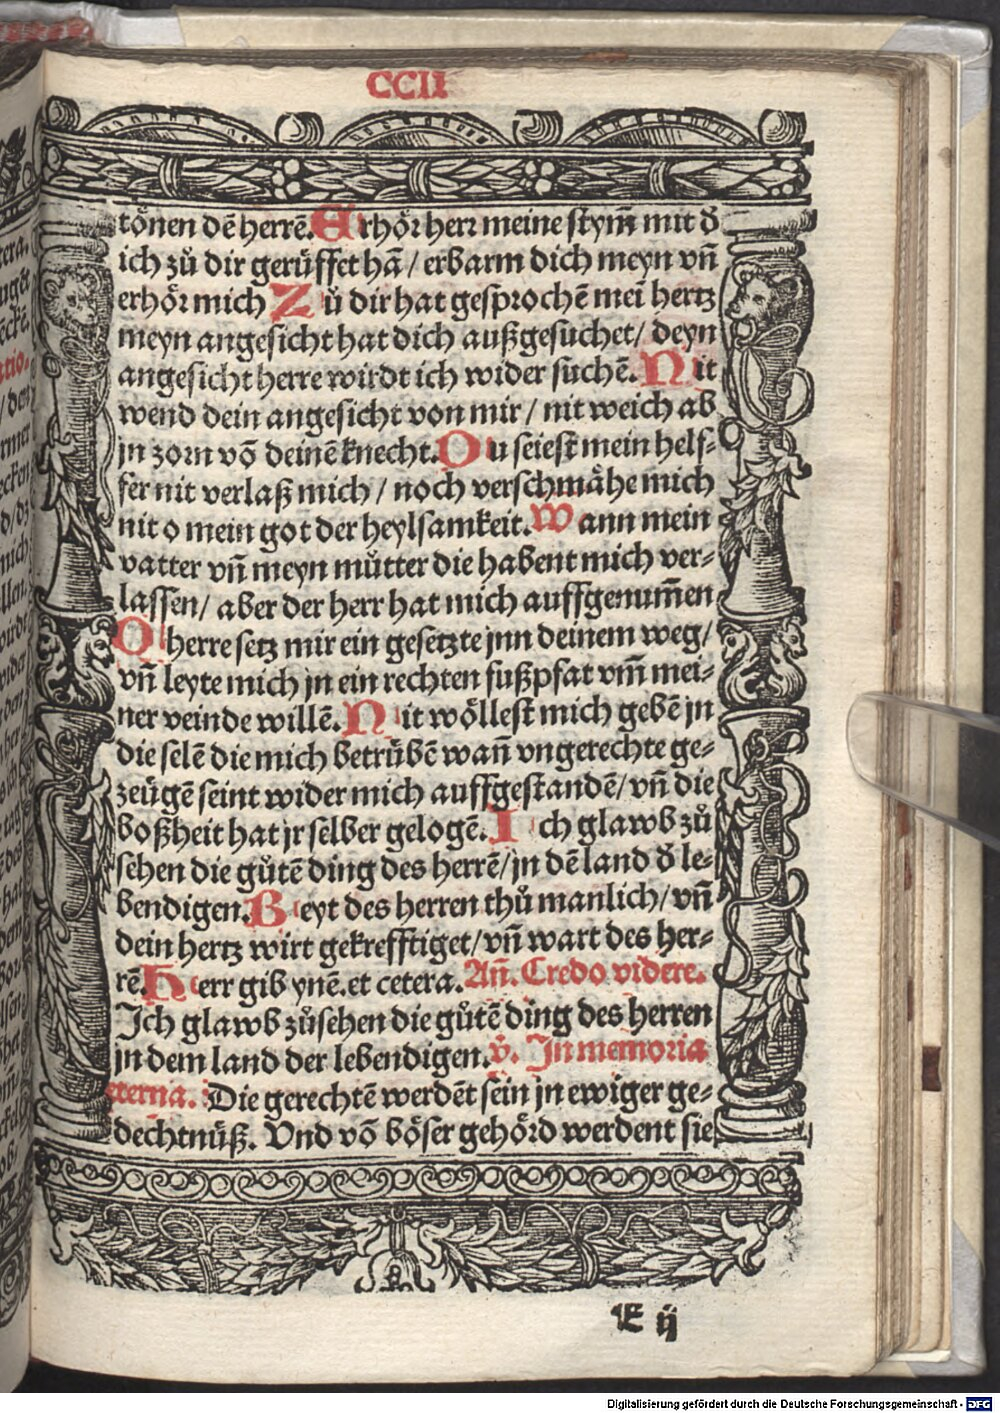 CCII
tönen dē herrē. Erhör herr meine stym̄ mit d̄
ich zů dir gerüffet hā / erbarm dich meyn vn̄
erhör mich Zů dir hat gesprochē mei hertz
meyn angesicht hat dich außgesuchet / deyn
angesicht herre wirdt ich wider suchē. Nit
wend dein angesicht von mir / nit weich ab
jn zorn vō deinē knecht. Du seiest mein helf⸗
fer nit verlaß mich / noch verschmähe mich
nit o mein got der heylsamkeit. Wann mein
vatter vn̄ meyn můtter die habent mich ver⸗
lassen / aber der herr hat mich auffgenum̄en
O herre setz mir ein gesetzte jnn deinem weg /
vn̄ leyte mich jn ein rechten fußpfat vm̄ mei⸗
ner veinde willē. Nit wöllest mich gebē jn
die selē die mich betrübē wan̄ vngerechte ge⸗
zeügē seint wider mich auffgestandē / vn̄ die
boßheit hat jr selber gelogē. Ich glawb zů
sehen die gůtē ding des herrē / jn dē land d̄ le⸗
bendigen. Beyt des herren thů manlich / vn̄
dein hertz wirt gekrefftiget / vn̄ wart des her⸗
rē. Herr gib ynē. et cetera. An̄. Credo videre.
Ich glawb zůsehen die gůtē ding des herren
jn dem land der lebendigen. v̊. In memoria
eterna. Die gerechtē werdēt sein jn ewiger ge⸗
dechtnüß. Vnd vō böser gehörd werdent sie
E ij
Digitalisierung gefördert durch die Deutsche Forschungsgemeinschaft - DFG